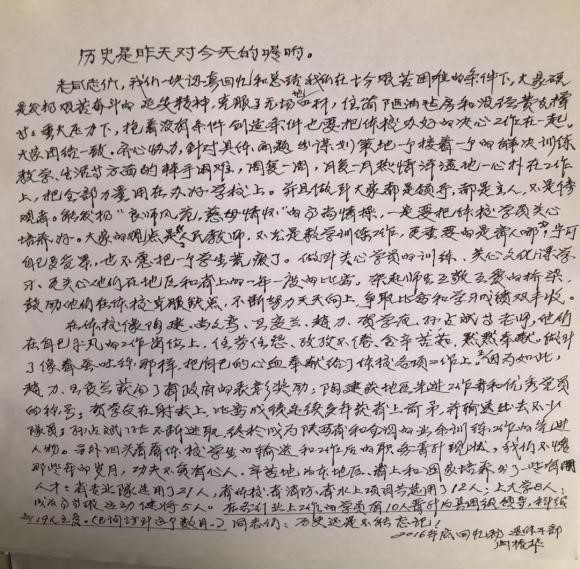 历史是昨天对今天的嘱咐。
老同志们,我们一块认真回忆和总结我们在十分艰苦困难的条件下,大家硕
是发扬艰苦奋斗的延安精神,克服了无场地和,住简陋油毡房和没经费支撑
重大压力下,抱着没有条件创造条件也要把体校办好的决心工作在一起。
大家团结一致。齐心协力,针对具体问题出谋划策地一个接着一个的解决训练
教学、生活等方面的棘手困难,周复一周,月复一月热情洋溢地一心扑在工作
上,把全部力量用在办好学校上。并且做到大家都是领导,都是主人,不是傍
观者。能发扬“良师风范,慈母情怀”的高尚情操,一定要把体校学员关心
培养好。大家的观点是人民教师,不光是教学训练工作,更重要的是育人哪,宁可
自己多受累,也不愿把一个学生荒废了。做到关心学员的训练、关心文化课学
习、更关心他们在地区和省上的一年一度的比赛。架起师生互敬互爱的桥梁,
鼓励他们在体校克服缺点,不断努力天天向上,争取比赛和学习成绩双丰收。
在体校像陶建、尚久鸾、马爱兰、赵力、贺学友、孙老斌等老师,他们
在自己平凡的工作岗位上,任劳任怨、孜孜不倦、含辛茹苦、默默奉献。做到
了像春蚕吐丝那样,把自己的心血奉献给了体校各项工作上。因为如此,
赵力、马爱兰获得了省政府的表彰奖励;陶建获地区先进工作者和优秀党员
的称号;贺学友在射击上,比赛成绩连续多年获省上前茅,并输送出去不少
队员;不断进取,终于成为陕西省和全国的业余训练工作的先进
人物。另外回头看看体校学生的输送和工作后的职务晋升现状,我们不愧
那些年的岁月,功夫不负有心人,辛苦地为本地区、省上和国家培养出了一些有用
人才:省专业队选用了21人,省体校、省消防、省水上项目等选用了12人;上大学8人;
运动健将5人。在各行业上工作的学员有10人晋升为县团级领导,科级
19人之多。同志们:历史还是不能忘记!
2016年底回忆 退休干部
闫振华